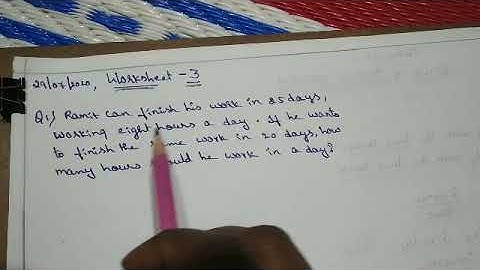 29/07/2020, Worksheet - 3
Q1) Ramit can finish his work in 25 days,
working eight hours a day. If he wants
to finish the same work in 20 days, how
many hours should he work in a day?